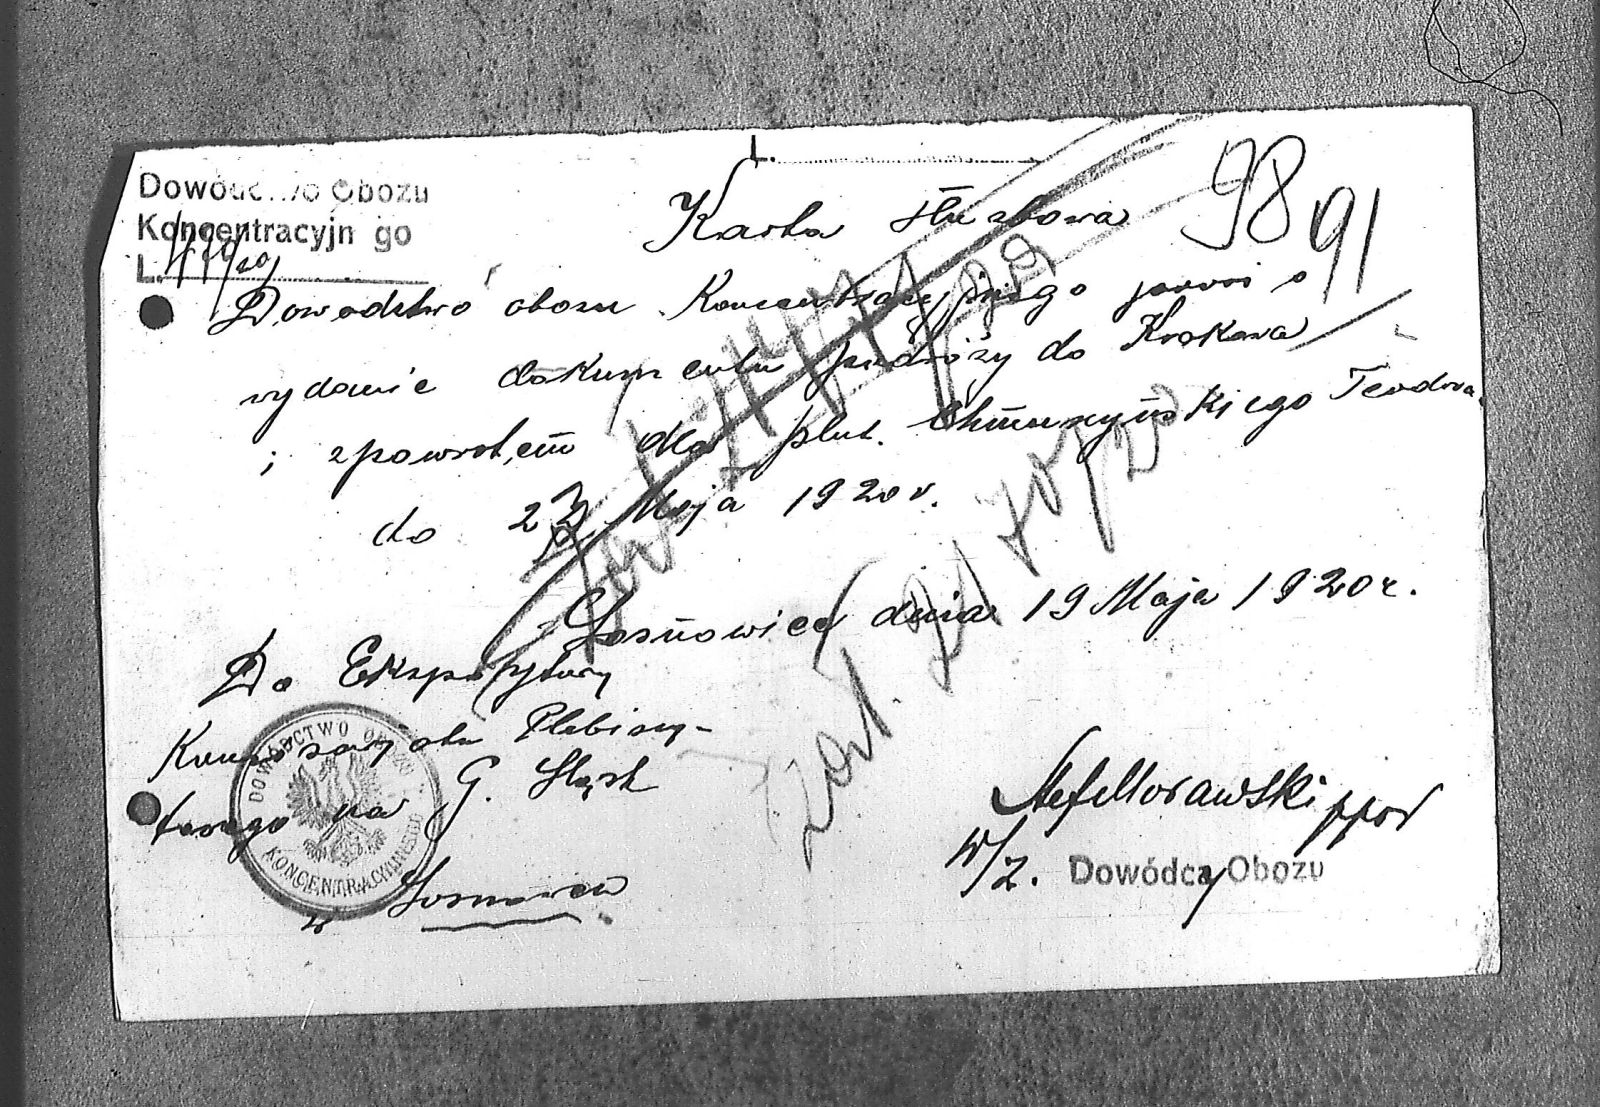 L.
98
91
Dowództwo Obozu
Koncentracyjn go
L.
Karta służbowa
Dowództwo obozu Koncentracyjnego prosi o
wydanie dokumentu podróży do Krakowa
i zpowrotem dla plut. Chmurzyńskiego Teodora
do 23 Maja 1920 r.
Sosnowiec dnia 19 Maja 1920 r.
Do Ekspozytury
Komisarjatu Plebiscy-
towego na G. Śląsk
w Sosnowcu
DOWÓDCTWO OBOZU
KONCENTRACYJNEGO
Zał. 21 70/20
Stef Morawski ppor
W/z. Dowódca Obozu